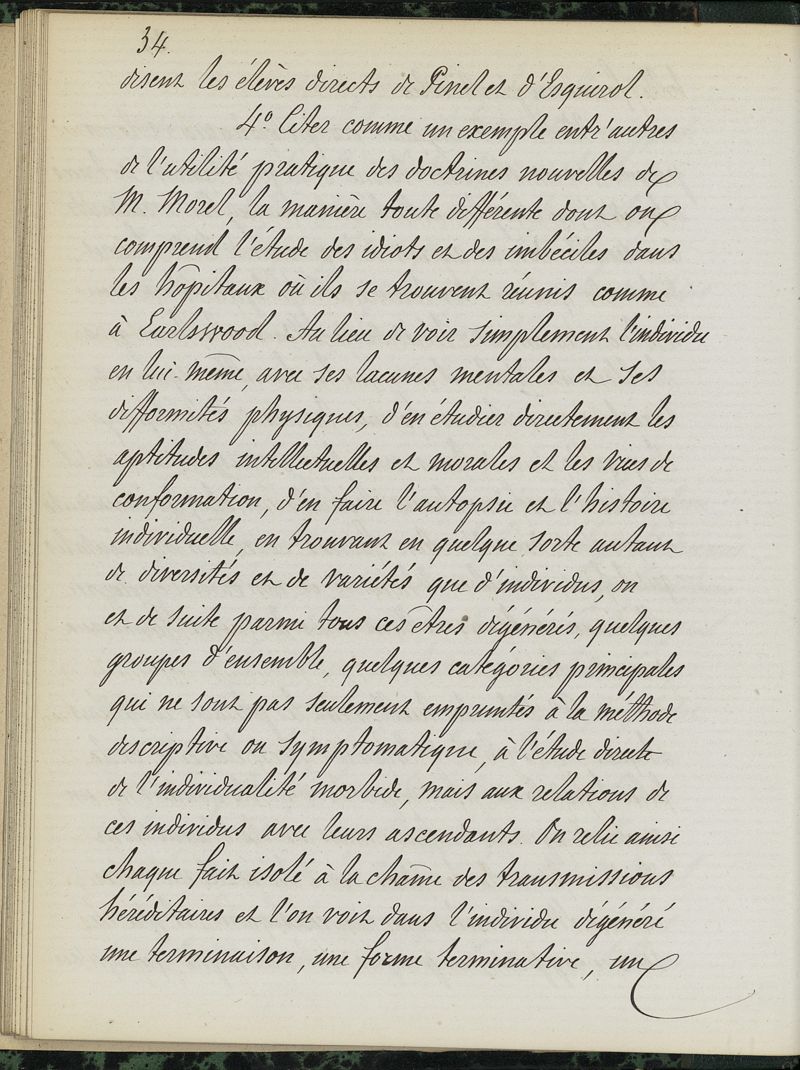 34.
disent les élèves directs de Pinel et d'Esquirol.
4.º Citer comme un exemple entr'autres
de l'utilité pratique des doctrines nouvelles de
M. Morel, la manière toute différente dont on
comprend l'étude des idiots et des imbéciles dans
les hôpitaux où ils se trouvent réunis comme
à Earlswood. Au lieu de voir simplement l'individu
en lui-même, avec ses lacunes mentales et ses
difformités physiques, d'en étudier directement les
aptitudes intellectuelles et morales et les vices de
conformation, d'en faire l'autopsie et l'histoire
individuelle, en trouvant en quelque sorte autant
de diversités et de variétés que d'individus, on
et de suite parmi tous ces êtres dégénérés, quelques
groupes d'ensemble, quelques catégories principales
qui ne sont pas seulement empruntés à la méthode
descriptive ou symptomatique, à l'étude directe
de l'individualité morbide, mais aux relations de
ces individus avec leurs ascendants. On relie ainsi
chaque fait isolé à la chaîne des transmissions
héréditaires et l'on voit dans l'individu dégénéré
une terminaison, une forme terminative, un